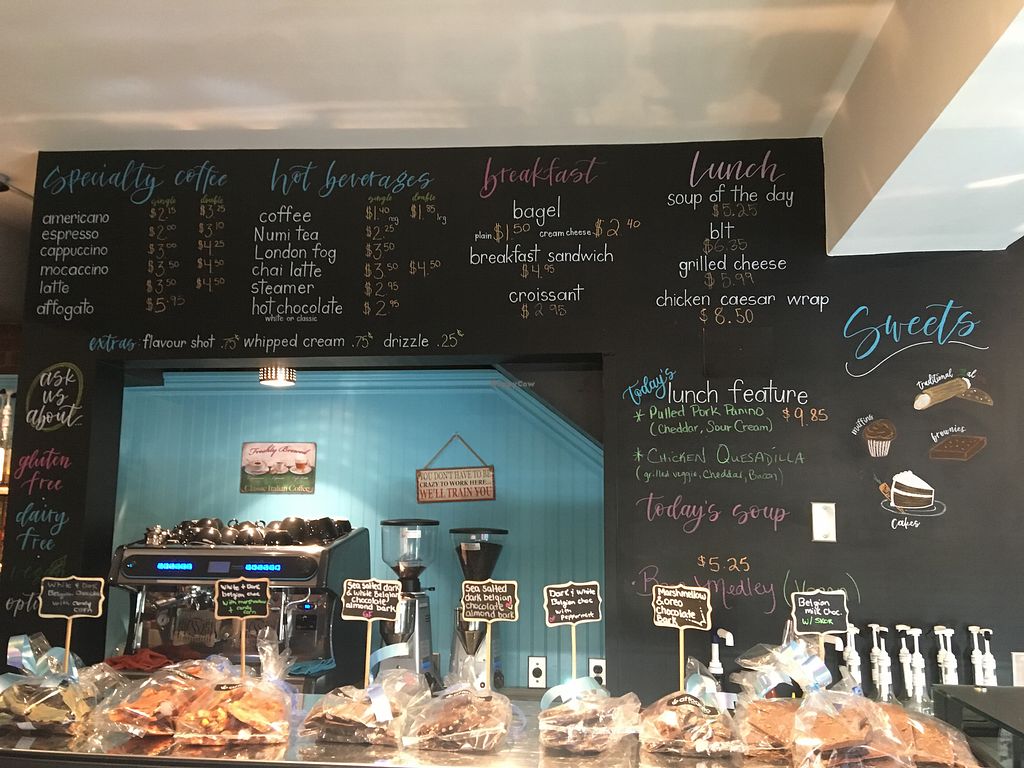 specialty coffee
single double
americano $2.15 $3.25
espresso $2.00 $3.10
cappuccino $3.00 $4.25
mocaccino $3.50 $4.50
latte $3.50 $4.50
affogato $5.95
hot beverages
single double
coffee $1.40 mg $1.85 lrg
Numi tea $2.25
London fog $3.50
chai latte $3.50 $4.50
steamer $2.95
hot chocolate $2.95
white or classic
extras: flavour shot .75¢ whipped cream .75¢ drizzle .25¢
breakfast
bagel
plain $1.50 cream cheese $2.40
breakfast sandwich
$4.95
croissant
$2.95
Lunch
soup of the day
$5.25
blt
$6.35
grilled cheese
$5.99
chicken caesar wrap
$8.50
Today's lunch feature
* Pulled Pork Panino $9.85
(Cheddar, Sour Cream)
* CHICKEN QUESADILLA
(grilled veggie, Cheddar, Bacon)
today's soup
$5.25
Medley
Sweets
traditional
muffins
brownies
cakes
ask
us
about...
gluten
free
dairy
free
Freshly Brewed
Classic Italian Coffee
YOU DON'T HAVE TO BE
CRAZY TO WORK HERE...
WE'LL TRAIN YOU
White & Dark
Belgian Chocolate
with candy
corn
White & Dark
belgian chocolate
with marshmallow
candy
corn
Sea salted dark
& white Belgian
chocolate
almond bark
GF
Sea salted
dark belgian
chocolate
almond bark
Dark & White
Belgian choc
with
Peppermint
Marshmallow
& oreo
Chocolate
Bark
Belgian
milk choc.
w/ SKOR